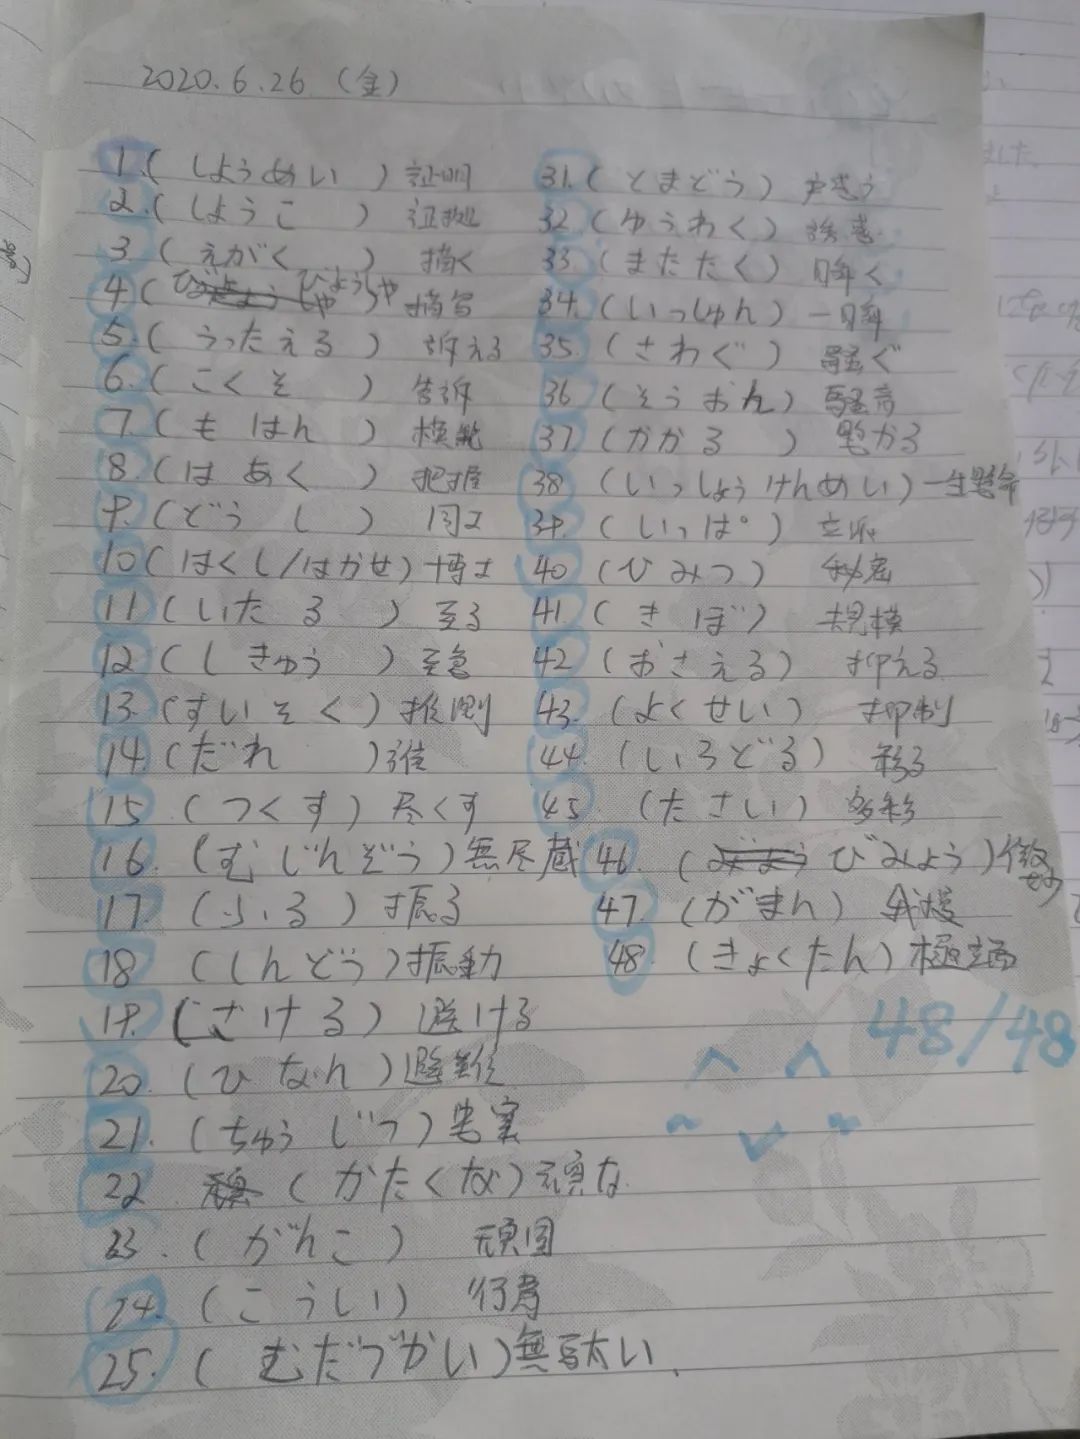 2020.6.26 (金)
1.(しょうめい) 証明
2.(しょうこ) 証拠
3 (えがく) 描く
4 (びょうしゃ) 描写
5.(うったえる) 訴える
6.(こくそ) 告訴
7.(もはん) 模範
8.(はあく) 把握
9.(どうし) 同士
10(はくし/はかせ)博士
11(いたる) 至る
12(しきゅう) 至急
13.(すいそく)推測
14.(だれ)誰
15 (つくす) 尽くす
16.(むじんぞう)無尽蔵
17.(ふる) 振る
18 (しんどう)振動
19.(さける) 避ける
20.(ひなん)避難
21.(ちゅうじつ)忠実
22 (かたくな)頑な
23.(がんこ) 頑固
24.(こうい) 行為
25.(むだづかい)無駄い
31.(とまどう) 戸惑う
32.(ゆうわく) 誘惑
33.(またたく) 瞬く
34.(いっしゅん) 一瞬
35.(さわぐ) 騒ぐ
36 (そうおん) 騒音
37.(かかる) 懸かる
38 (いっしょうけんめい)一生懸命
39.(いっぱ゜) 立派
40 (ひみつ) 秘密
41.(きぼ) 規模
42 (おさえる) 抑える
43.(よくせい) 抑制
44.(いろどる) 彩る
45 (たさい) 多彩
46.(びみょう)微妙
47.(がまん) 我慢
48.(きょくたん)極端
48/48